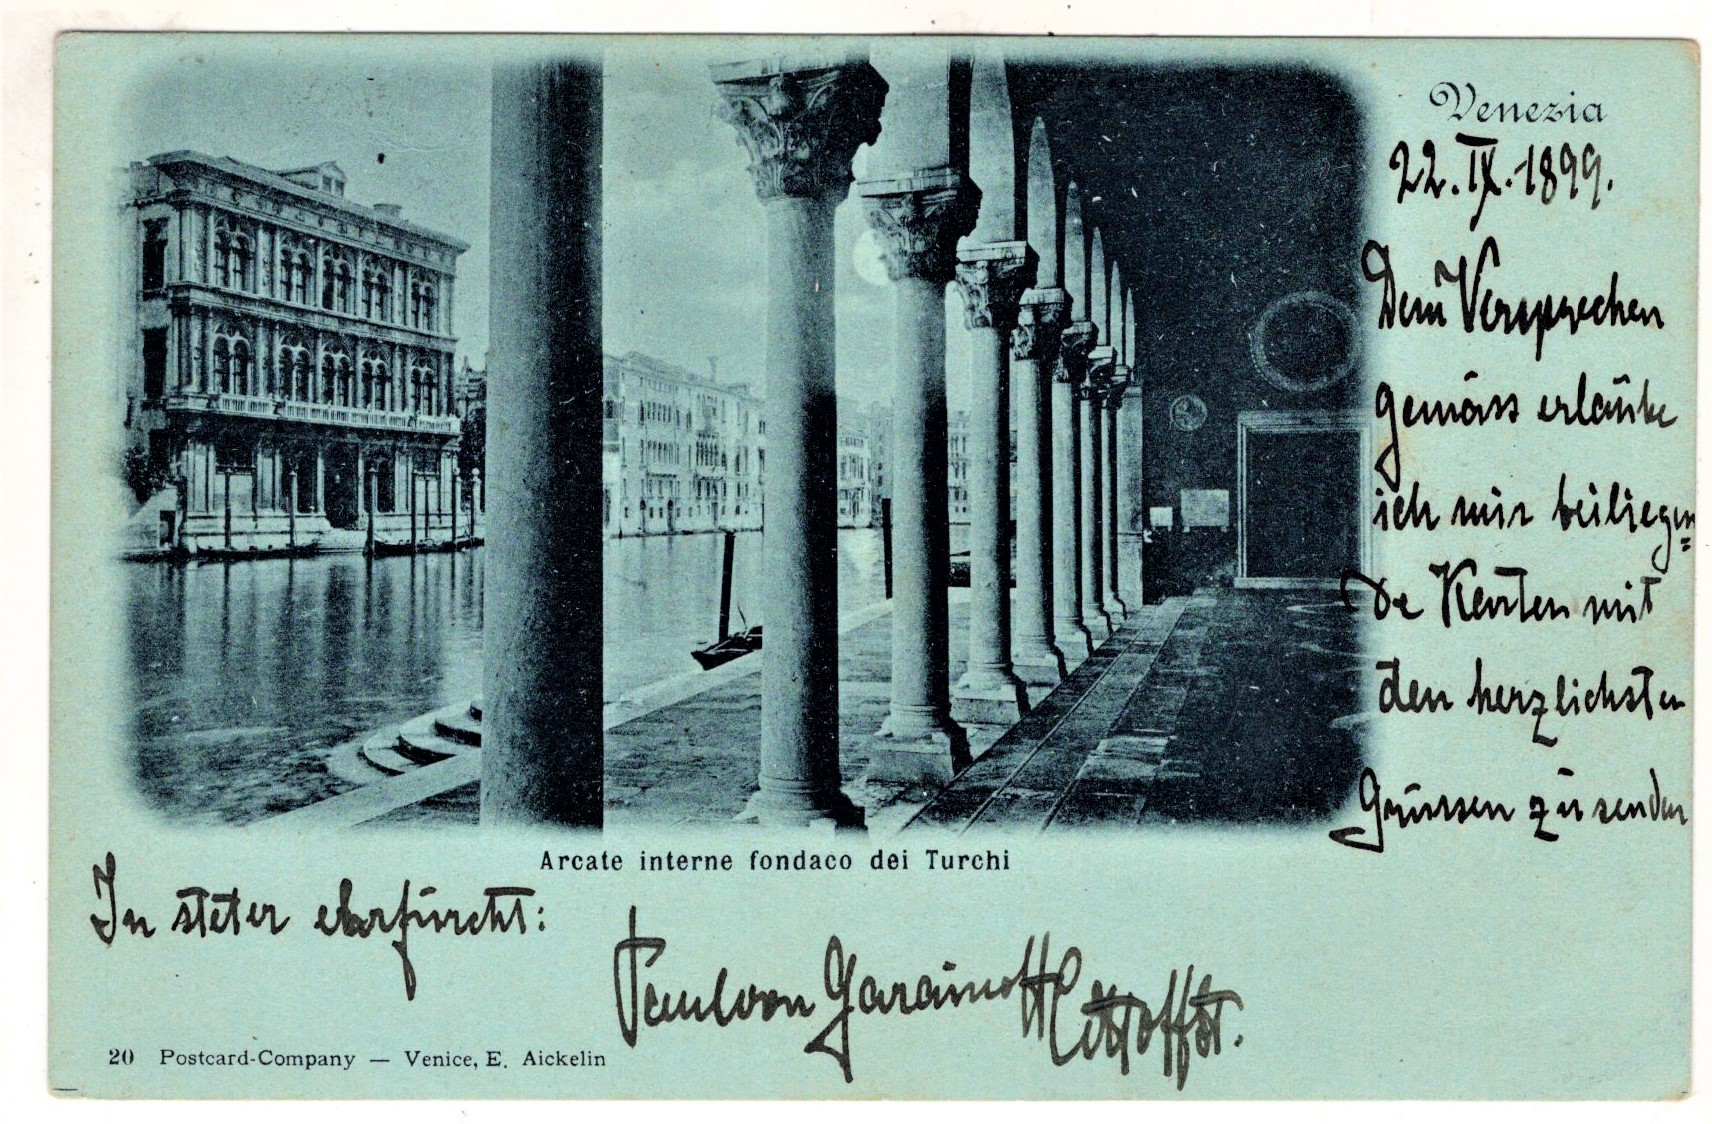 Venezia
22. IX. 1899.
Dem Versprechen
gemäss erlaube
ich mir beiliegen=
de Karten mit
den herzlichsten
Grüssen zu senden
Arcate interne fondaco dei Turchi
In steter ehrfurcht:
Paul von
20 Postcard-Company — Venice, E. Aickelin